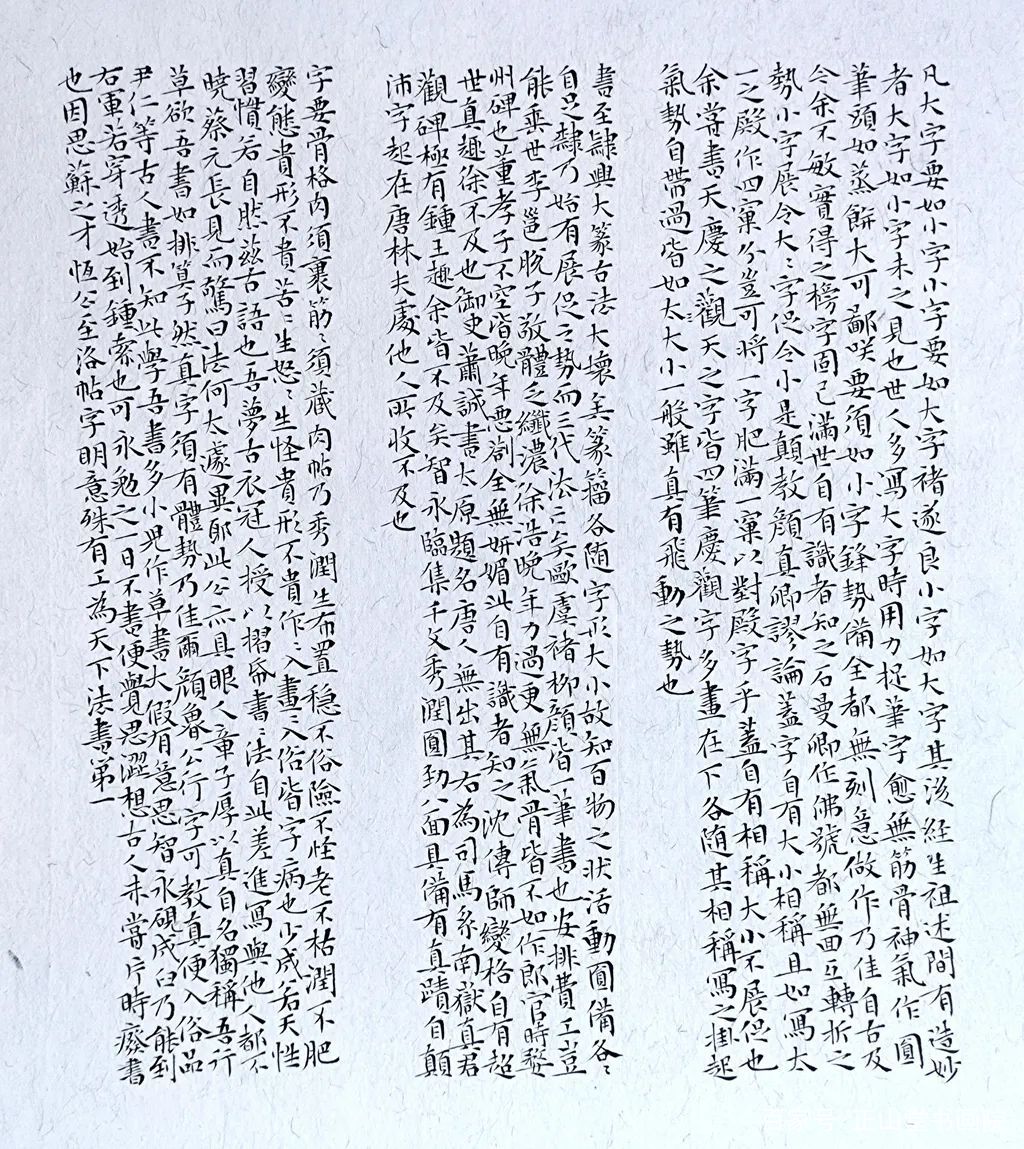 凡大字要如小字小字要如大字褚遂良小字如大字其後經生祖述間有造妙
者大字如小字未之見也世人多寫大字時用力捉筆字愈無筋骨神氣作圓
筆頭如蒸餅大可鄙咲要須如小字鋒勢備全都無刻意做作乃佳自古及
今余不敏實得之榜字固已滿世自有識者知之石曼卿作佛號都無回互轉折之
勢小字展令大〻字促令小是顛教顏真卿謬論蓋字自有大小相稱且如寫太
一之殿作四窠分豈可將一字肥滿一窠以對殿字乎蓋自有相稱大小不展促也
余嘗書天慶之觀天之字皆四筆慶觀字多畫在下各隨其相稱寫之掛起
氣勢自帶過皆如大大小一般雖真有飛動之勢也
書至隸興大篆古法大壞矣篆籀各随字形大小故知百物之狀活動圓備各〻
自足隸乃始有展促之勢而三代法亡矣歐虞褚柳顏皆一筆書也安排費工豈
能垂世李邕脫子敬體乏纖濃徐浩晚年力過更無氣骨皆不如作郎官時婺
州碑也董孝子不空皆晚年惡劄全無妍媚此自有識者知之沈傳師變格自有超
世真趣徐不及也御史蕭誠書太原題名唐人無出其右為司馬系南嶽真君
觀碑極有鍾王趣余皆不及矣智永臨集千文秀潤圓勁八面具備有真蹟自顛
沛字起在唐林夫處他人所收不及也
字要骨格肉須裹筋〻須藏肉帖乃秀潤生布置穩不俗險不怪老不枯潤不肥
變態貴形不貴苦〻生怒〻生怪貴形不貴作〻入畫〻入俗皆字病也少成若天性
習慣若自然茲古語也吾夢古衣冠人授以摺紙書〻法自此差進寫與他人都不
曉蔡元長見而驚曰法何太遽異耶此公亦具眼人章子厚以真自名獨稱吾行
草欲吾書如排算子然真字須有體勢乃佳爾顏魯公行字可教真便入俗品
尹仁等古人書不知此學吾書多小兒作草書大假有意思智永硯成臼乃能到
右軍若穿透始到鍾索也可永勉之一日不書便覺思澀想古人未嘗片時癈書
也因思蘇之才恆公至洛帖字明意殊有工為天下法書第一